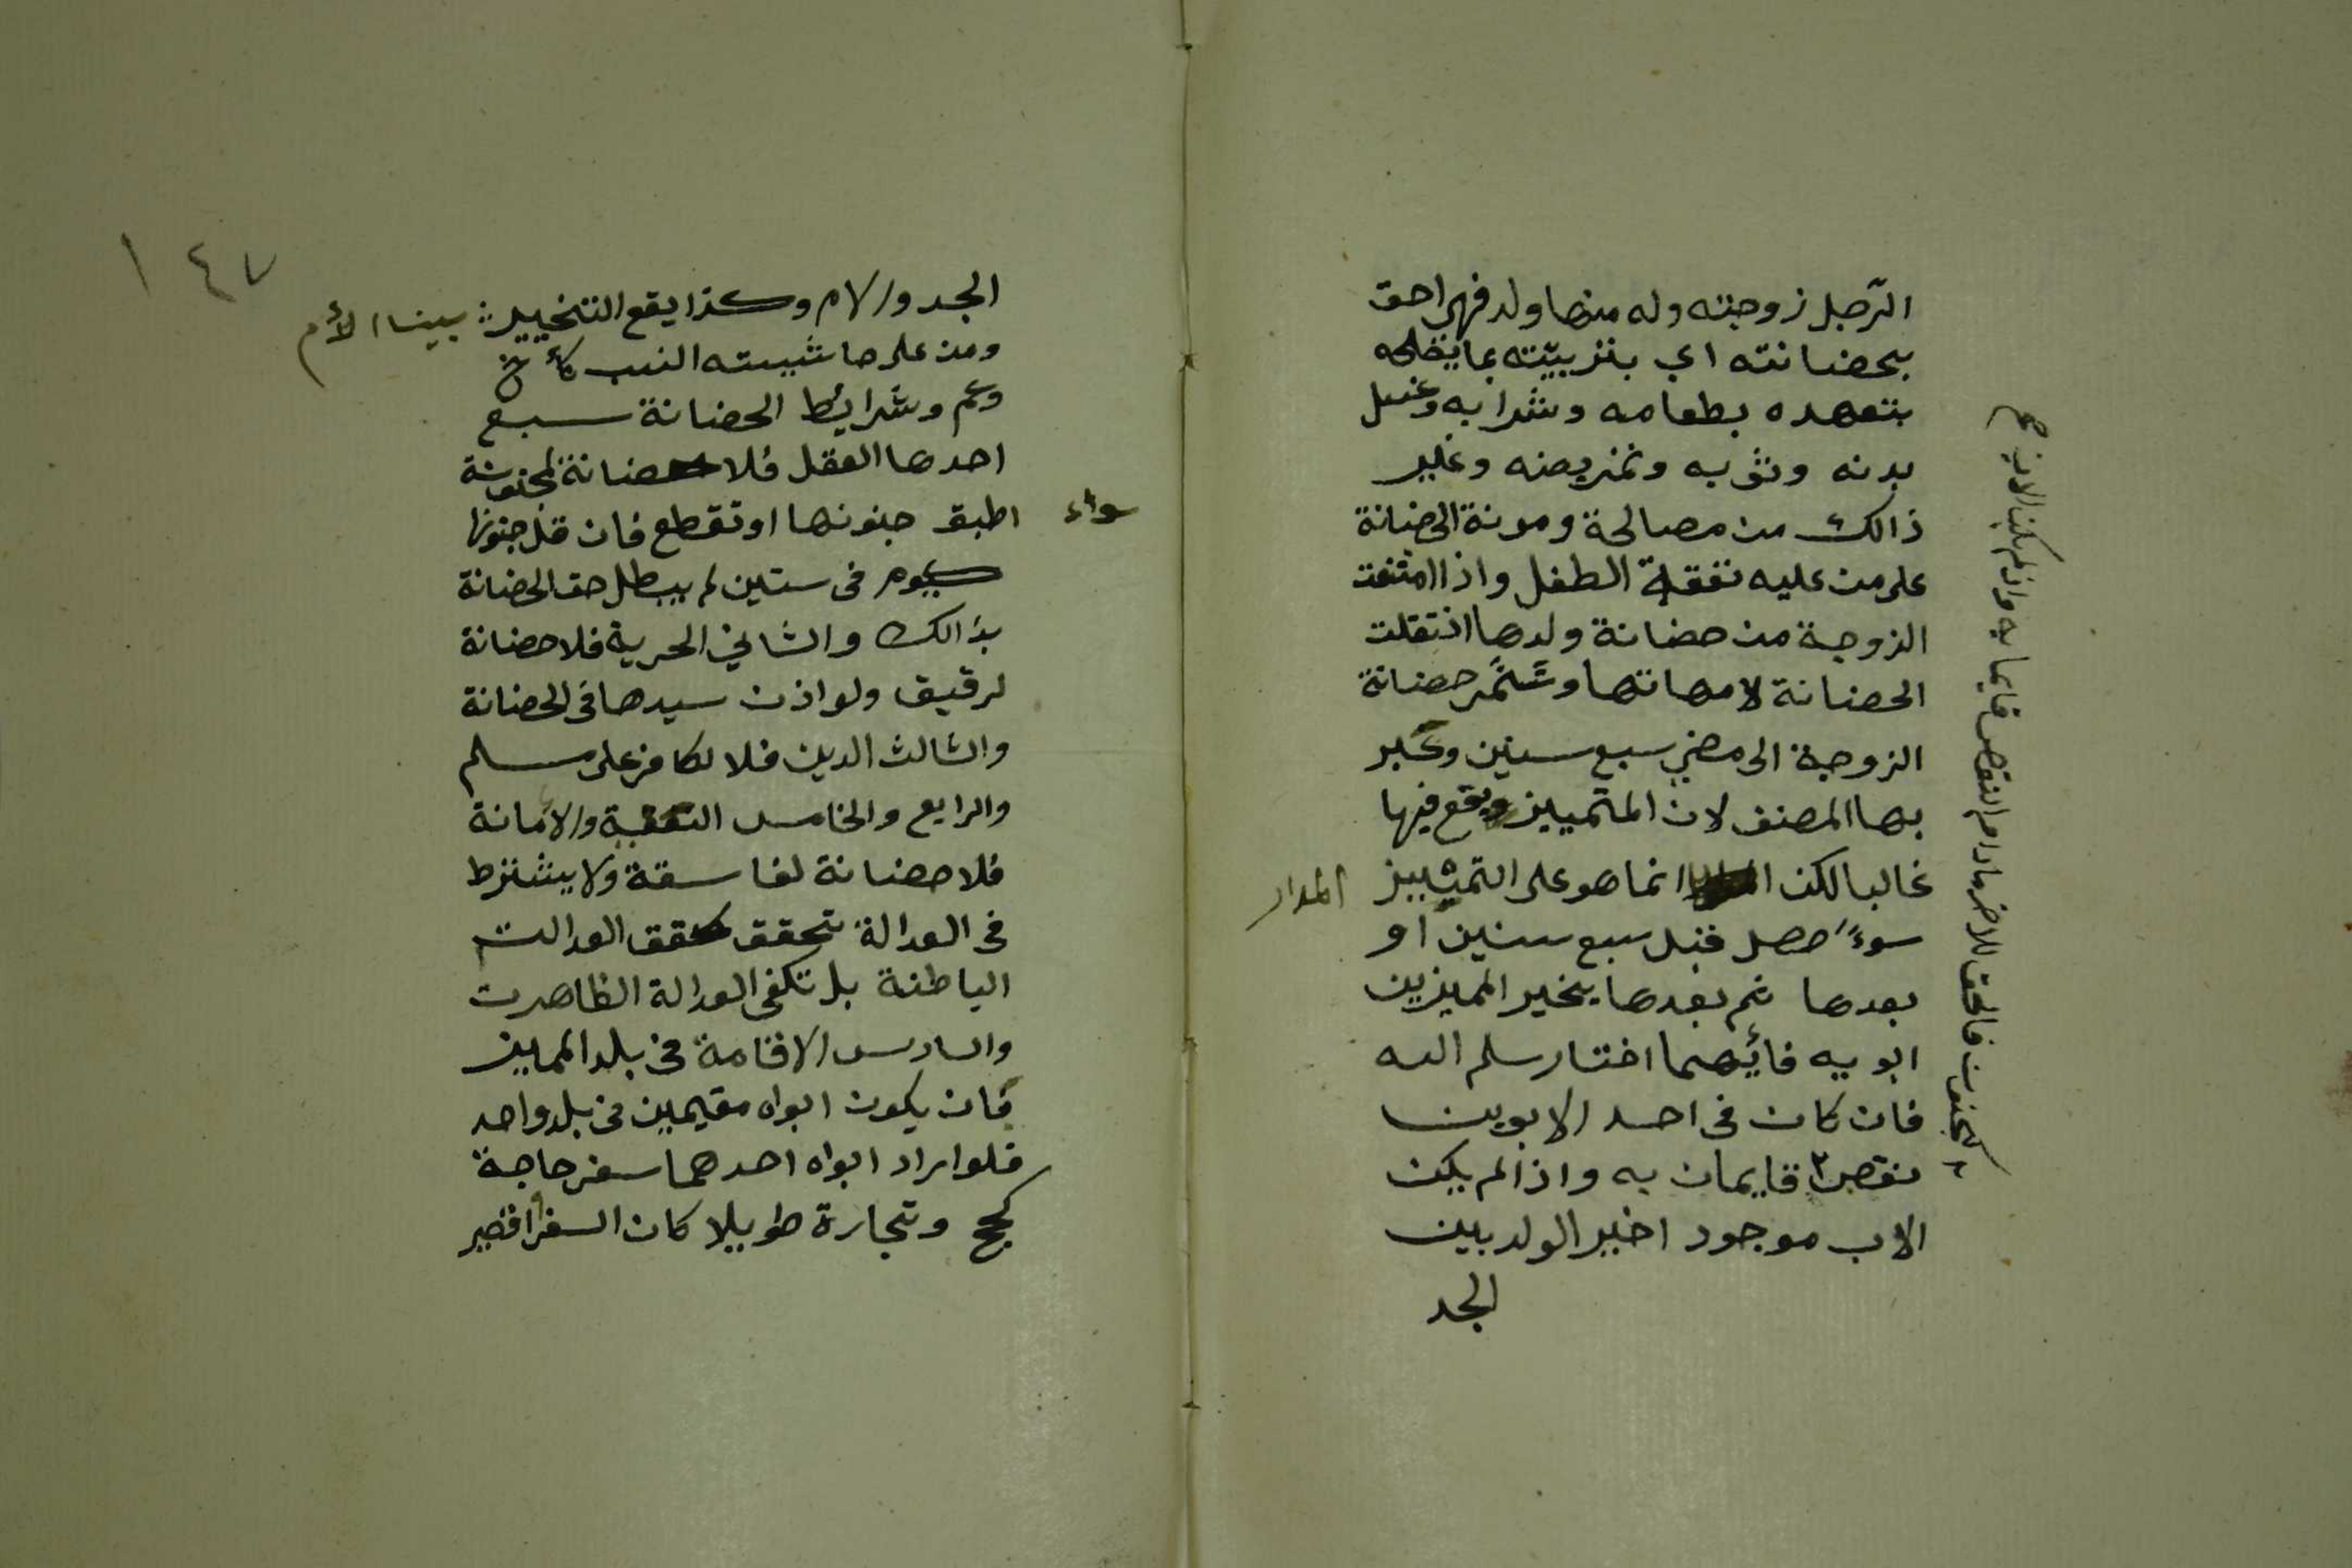 الرّجل زوجته وله منها ولد فهي احق
بحضانته اي بتربيّته بما يصلحه
بتعهده بطعامه وشرابه وغسل
بدنه وثوبه وتمريضه وغير
ذالك من مصالحة ومونة الحضانة
على من عليه نفقة الطفل واذا امتنعت
الزوجة من حضانة ولدها انتقلت
الحضانة لامهاتها وتستمر حضانة
الزوجة الى مضي سبع سنين وعبر
بها المصنف لان التمييز ويقع فيها
غالبا لكن المدار انما هو على التمييز
سوءً حصل قبل سبع سنين او
بعدها ثم بعدها يخير المميز بين
ابويه فائيهما اختار سلم اليه
فان كان في احد الابوين
نقص ٢ قايمان به واذا لم يكن
الاب موجود اخير الولد بين
الجد
٢ كجنون فالحق للاخر مادام النقص قايما به واذا لم يكن الاب
١٤٧
الجد والام وكذا يقع التخيير بين الأم
ومن على حاشيته النسب كأخ
وعم وشرايط الحضانة سبع
احدها العقل فلا حضانة لمجنونة
سواء اطبق جنونها او تقطع فان قل جنونها
كيوم في سنين لم يبطل حق الحضانة
بذالك والثاني الحرية فلا حضانة
لرقيق ولو اذن سيدها في الحضانة
والثالث الدين فلا لكافر على مسلم
والرابع والخامس العفة والأمانة
فلا حضانة لفاسقة ولا يشترط
في العدالة تحقق العدالت
الباطنة بل تكفي العدالة الظاهرت
والسادس الاقامة في بلد المميز
فان يكون ابواه مقيمين في بلد واحد
فلو اراد ابواه احدهما سفر حاجة
كحج وتجارة طويلا كان السفر اقصير